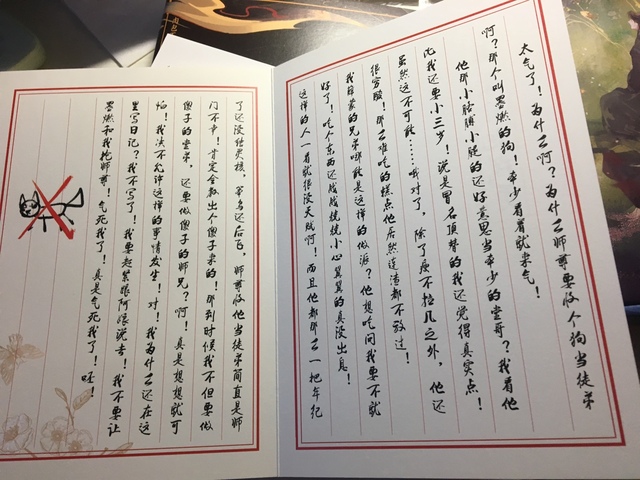 太气了！为什么啊？为什么师尊要收个狗当徒弟
啊？那个叫墨燃的狗！本少看着就来气！
他那小胳膊小腿的还好意思当本少的堂哥？我看他
比我还要小三岁！说是冒名顶替的我还觉得真实点！
虽然这不可能……哦对了，除了瘦不拉几之外，他还
很穷酸！那么难吃的糕点他居然连渣都不放过！
我薛蒙的兄弟哪能是这样的做派？他想吃问我要不就
好了！吃个东西还战战兢兢小心翼翼的真没出息！
这样的人一看就很没天赋啊！而且他都那么一把年纪
了还没结灵核，笨鸟还后飞，师尊收他当徒弟简直是师
门不幸！肯定会教出个傻子来的！那到时候我不但要做
傻子的堂弟，还要做傻子的师兄？啊！真是想想就可
怕！我决不允许这样的事情发生！对！我为什么还在这
里写日记？我不写了！我要赶紧跟阿娘说去！我不要让
墨燃和我抢师尊！气死我了！真是气死我了！呸！